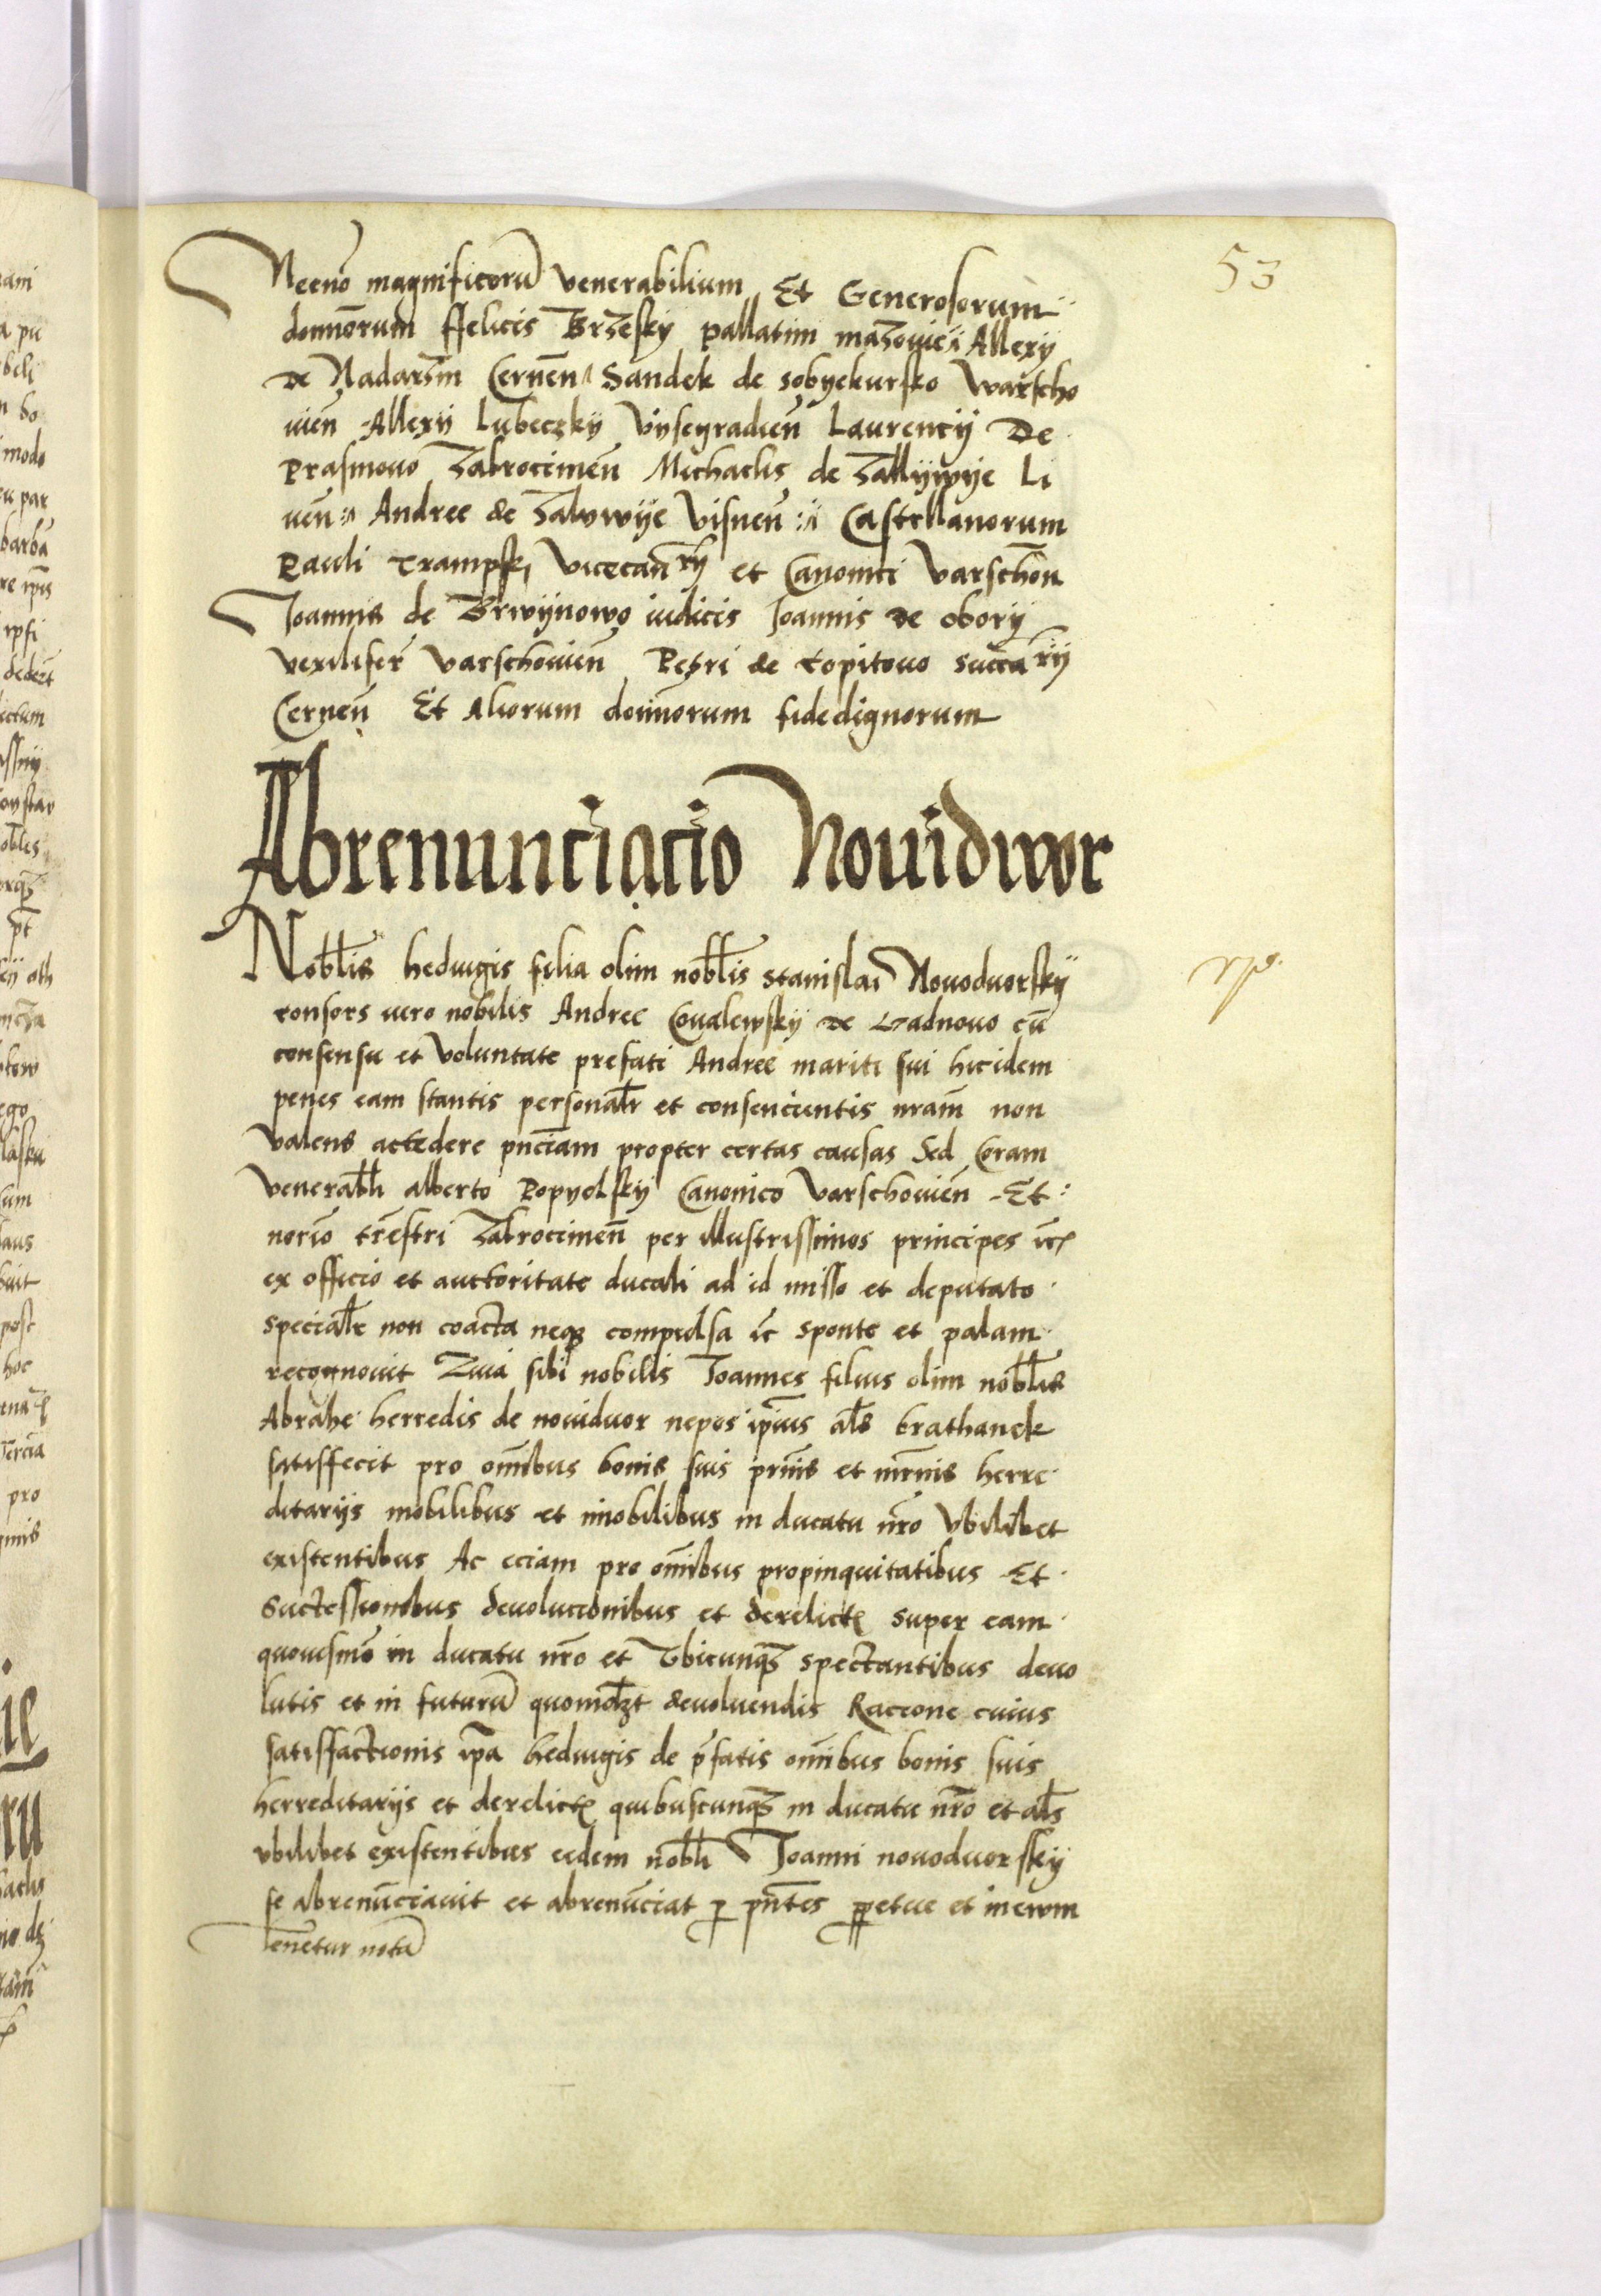 53
Necnō magnificorū venerabilium Et Generosorum
domnorum ffelicis Brzesky pallatini mazouie Allexy
de Nadarzin Cernen̄ Sandek de sobyekursko warscho
uien̄ Allexy Lubeczky Vysegradien̄ Laurency De
Prasmouo Zakrocimen̄ Michaelis de Zallywye Li
uen̄ Andree de Zalywye Visnen̄ Castellanorum
Pauli Trampsky vicecan̄rij et Canonici varschōn
Joannis de Brwynowo iudicis Joannis de obory
vexiliferi varschouien̄ Petri de topitouo succarij
Cernen̄ Et Aliorum domnorum fidedignorum
Abrenunciacio Nouidwor
Nobīlis heduigis filia olim nobīlis stanislai Nouoduorsky
consors vero nobilis Andree Coualewsky de Ladnouo cū
consensu et voluntate prefati Andree mariti sui hicidem
penes eam stantis personalr et consencientis nr̄am non
valens accedere pn̄ciam propter certas causas Sed Coram
venerabli alberto Popyolsky Canonico varschouien̄ Et
norio tr̄estri Zakrocimen̄ per illustrissimos principes etc
ex officio et auctoritate ducali ad id misso et deputato
specialr non coacta neqȝ compulsa etc sponte et palam
recognouit Quia sibi nobilis Joannes filius olim nobīlis
Abrahe herredis de nouiduor nepos ip̄ius als brathanek
satisffecit pro om̄ibus bonis suis prn̄is et mr̄nis herre
ditarijs mobilibus et imobilibus in ducatu nr̄o vbilibet
existentibus Ac eciam pro om̄ibus propinquitatibus Et
Successionibus deuolucionibus et derelictis super eam
quouismō in ducatu nr̄o et vbicunqȝ spectantibus deuo
lutis et in futurū quomolȝt deuoluendis Racione cuius
satisfactionis ip̄a heduigis de p̄fatis om̄ibus bonis suis
herreditarijs et derelictis quibuscunqȝ in ducatu nr̄o et als
vbilibet existentibus eidem nobli Joanni nouoduorsky
se abrenūciauit et abrenūciat ꝑ pn̄tes ꝑpetue et in ewm
Tenetur notā